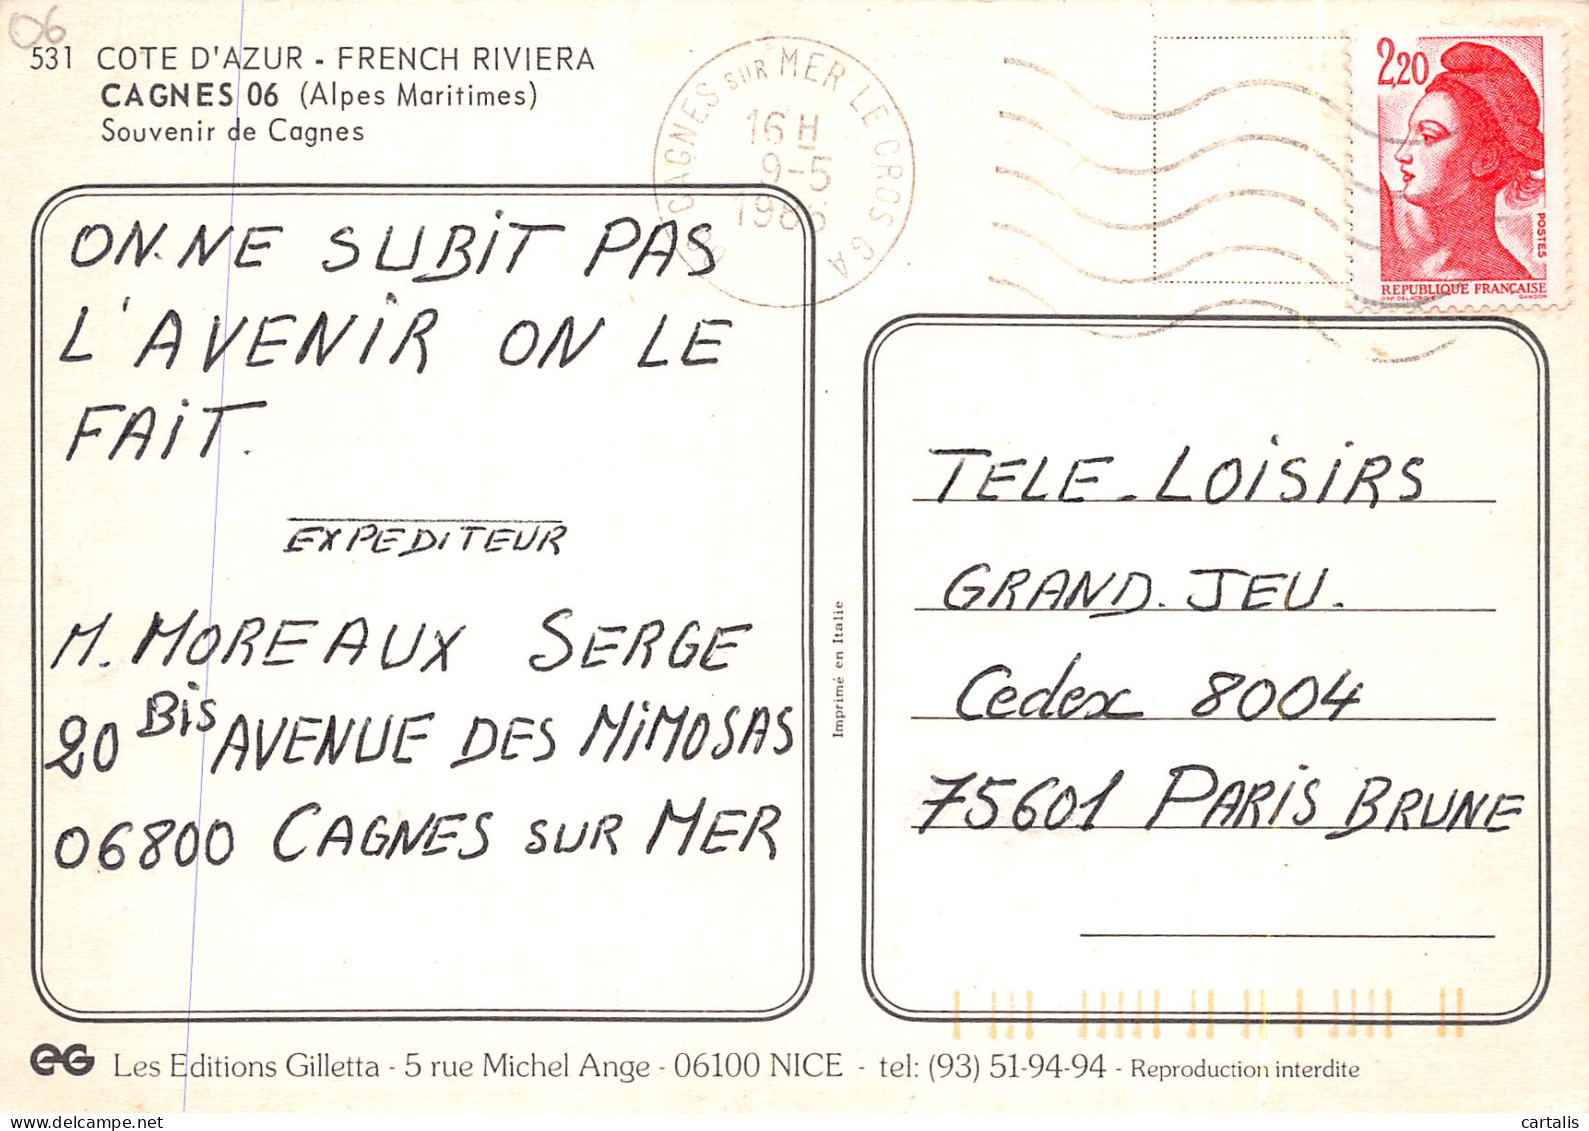 06
531 COTE D'AZUR - FRENCH RIVIERA
CAGNES 06 (Alpes Maritimes)
Souvenir de Cagnes
CAGNES SUR MER LE CROS G A
16 H
9-5
2,20
POSTES
REPUBLIQUE FRANÇAISE
D'AP. DELACROIX GANDON
ON.NE SUBIT PAS
L'AVENIR ON LE
FAIT.
EXPEDITEUR
M. MOREAUX SERGE
20 BIS AVENUE DES MIMOSAS
06800 CAGNES SUR MER
Imprimé en Italie
TELE-LOISIRS
GRAND. JEU.
Cedex 8004
75601 PARIS BRUNE
eG Les Editions Gilletta - 5 rue Michel Ange - 06100 NICE - tel: (93) 51-94-94 - Reproduction interdite
cartalis